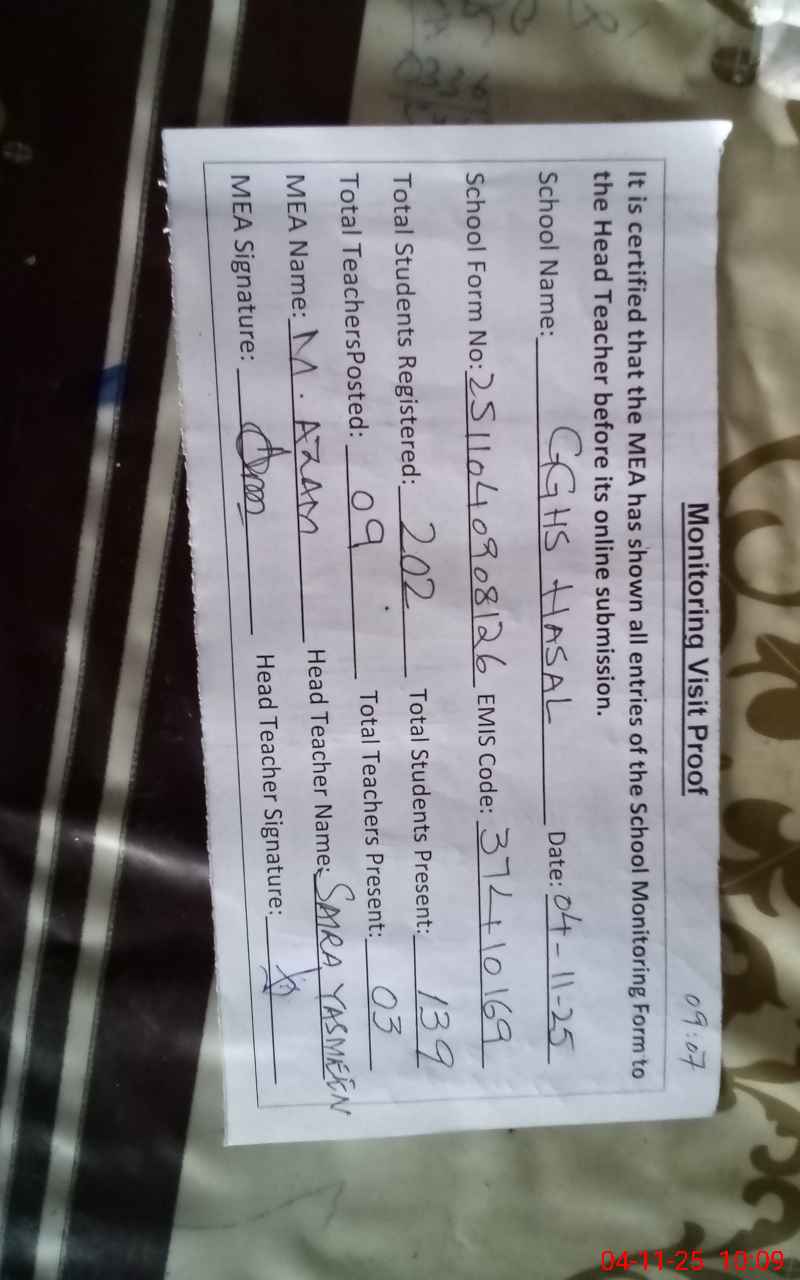 09:07
Monitoring Visit Proof
It is certified that the MEA has shown all entries of the School Monitoring Form to
the Head Teacher before its online submission.
School Name: GGHS HASAL Date: 04-11-25
School Form No: 2511040908126 EMIS Code: 37410169
Total Students Registered: 202 Total Students Present: 139
Total TeachersPosted: 09 Total Teachers Present: 03
MEA Name: M. AZAM Head Teacher Name: SAIRA YASMEEN
MEA Signature: Head Teacher Signature:
04-11-25 10:09